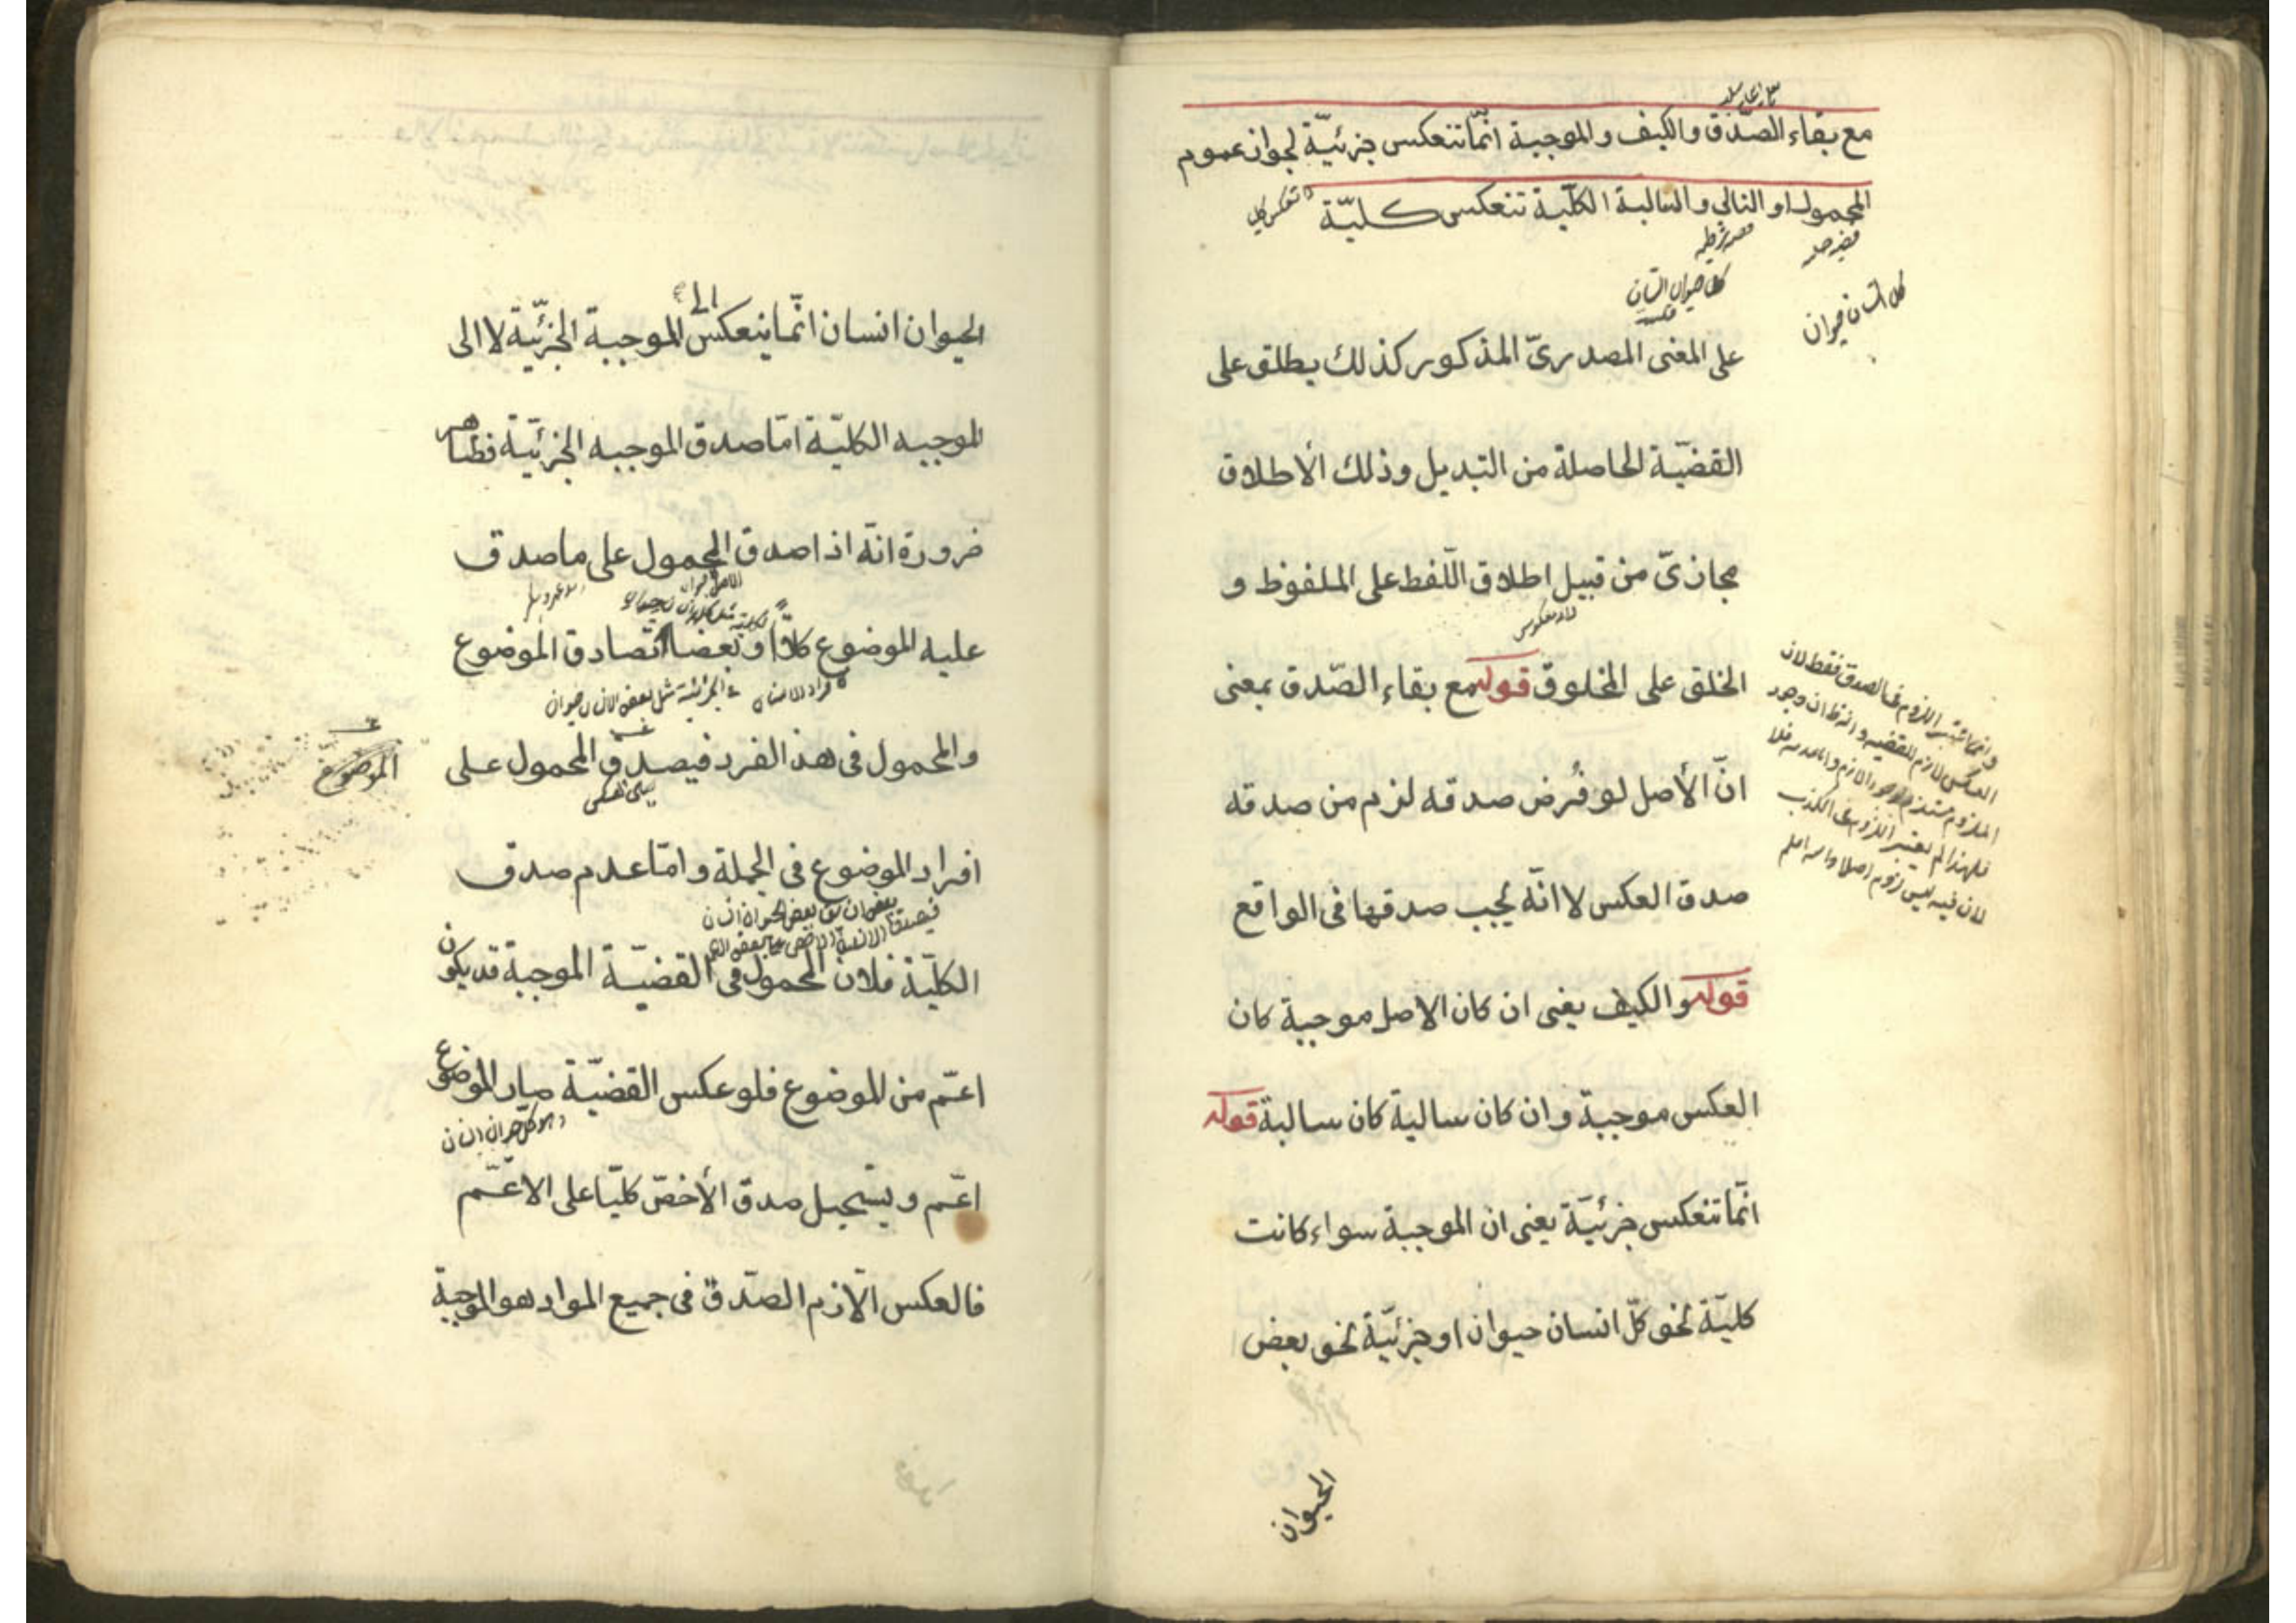 مع بقاء الصدق والكيف والموجبة انّما تنعكس جزئيّة لجواز عموم
المحمول او التالي والسالبة الكلّية تنعكس كليّة
كل حيوان انسان
كل انسان حيوان
على المعنى المصدرىّ المذكور كذلك يطلق على
القضيّة الحاصلة من التبديل وذلك الأطلاق
مجازىّ من قبيل اطلاق اللّفظ على الملفوظ و
الخلق على المخلوق قوله مع بقاء الصّدق بمعنى
انّ الأصل لو فُرض صدقه لزم من صدقه
صدق العكس لا انّه يجب صدقها فى الواقع
قوله والكيف يعنى ان كان الاصل موجبة كان
العكس موجبة وان كان سالبة كان سالبة قوله
انّما تنعكس جزئيّة يعنى ان الموجبة سواء كانت
كليّة نحو كلّ انسان حيوان او جزئيّة نحو بعض
الحيوان
وانما اعتبر اللزوم فى الصدق فقط لان
العكس لازم للقضيه
فلهذا لم يعتبر اللزوم فى الكذب
لان فيه ليس لزوم اصلا
الحيوان انسان انّما ينعكس الى الموجبة الجزئيّة لا الى
الموجبه الكليّة امّا صدق الموجبه الجزئيّة فظاهر
ضرورة انّه اذا صدق المحمول على ما صدق
عليه الموضوع كلاًّ او بعضا تصادق الموضوع
فى الجزئية مثل بعض الانسان حيوان
والمحمول فى هذا الفرد فيصدق المحمول على
الموضوع
افراد الموضوع فى الجملة وامّا عدم صدق
الكليّة فلان المحمول فى القضيّة الموجبة قد يكون
اعمّ من الموضوع فلو عكس القضيّة صار الموضوع
وهو كلّ حيوان انسان
اعمّ ويستحيل صدق الأخصّ كليّا على الاعمّ
فالعكس الّلازم الصّدق فى جميع المواد هو الموجبة